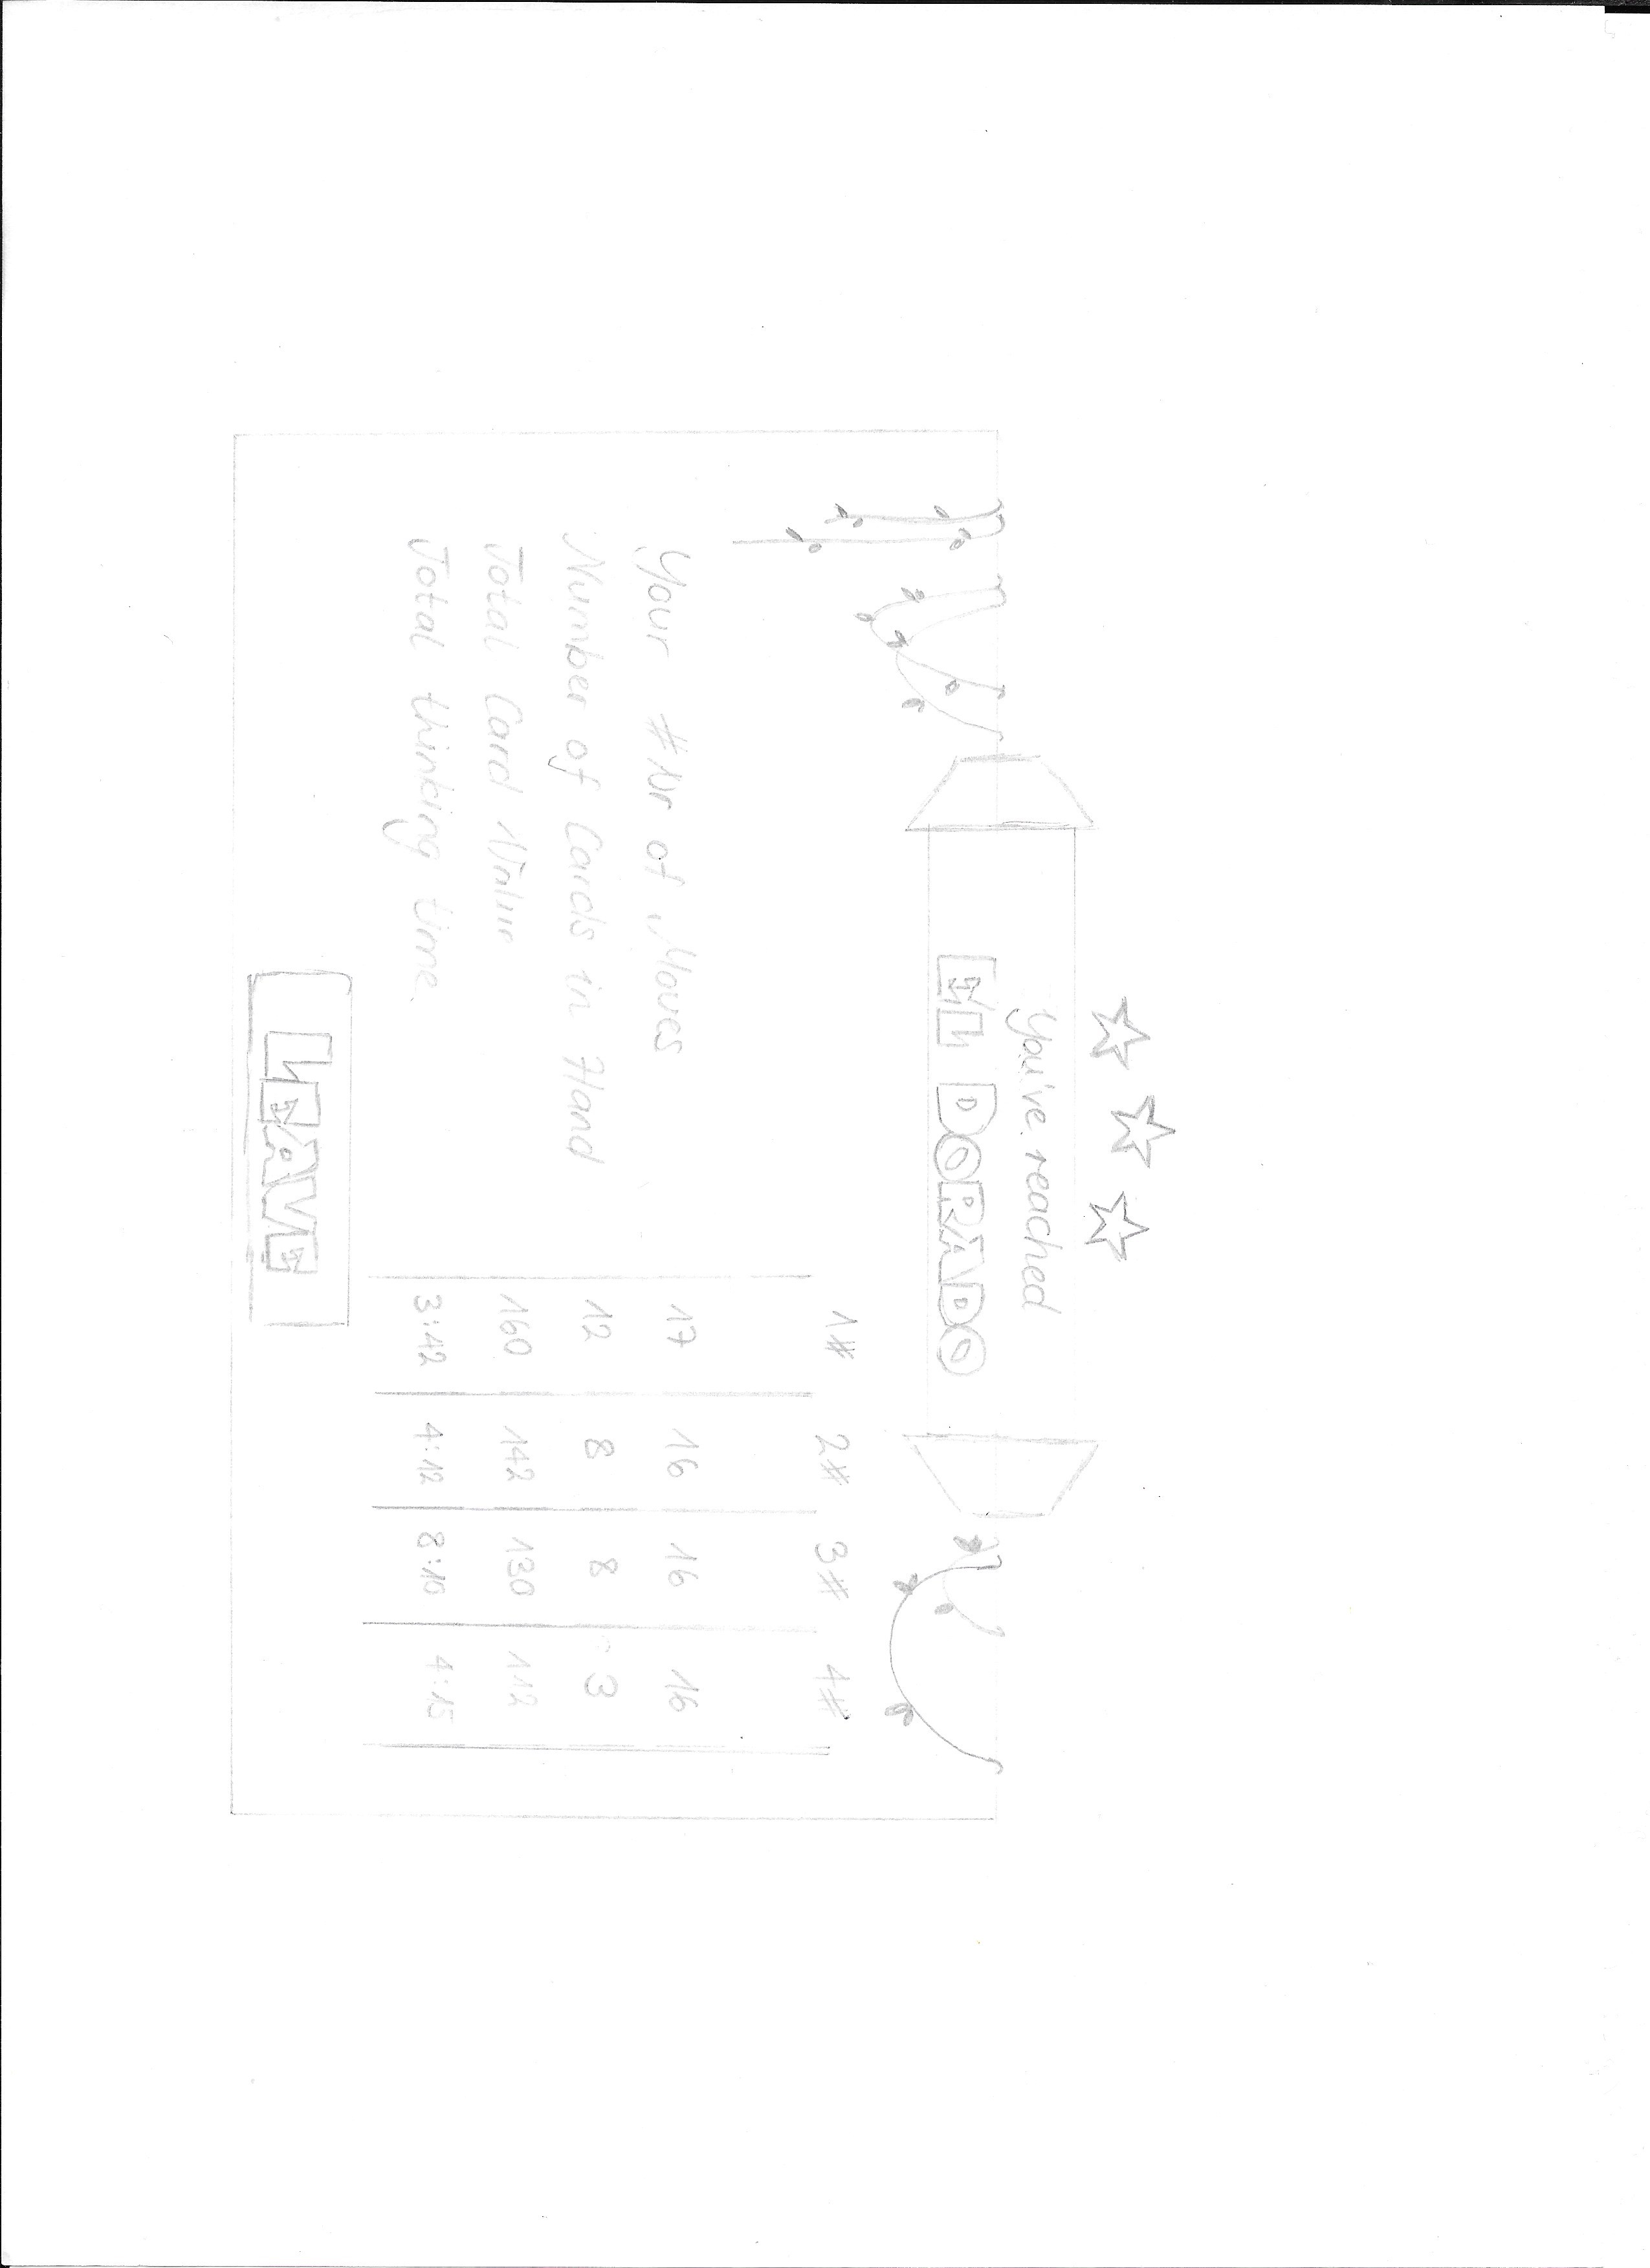 You've reached
EL DORADO
1# 2# 3# 4#
Your #Nr of Moves 17 16 16 16
Number of Cards in Hand 12 8 8 3
Total Card Value 160 142 130 112
Total thinking time 3:42 4:12 8:10 4:15
LEAVE